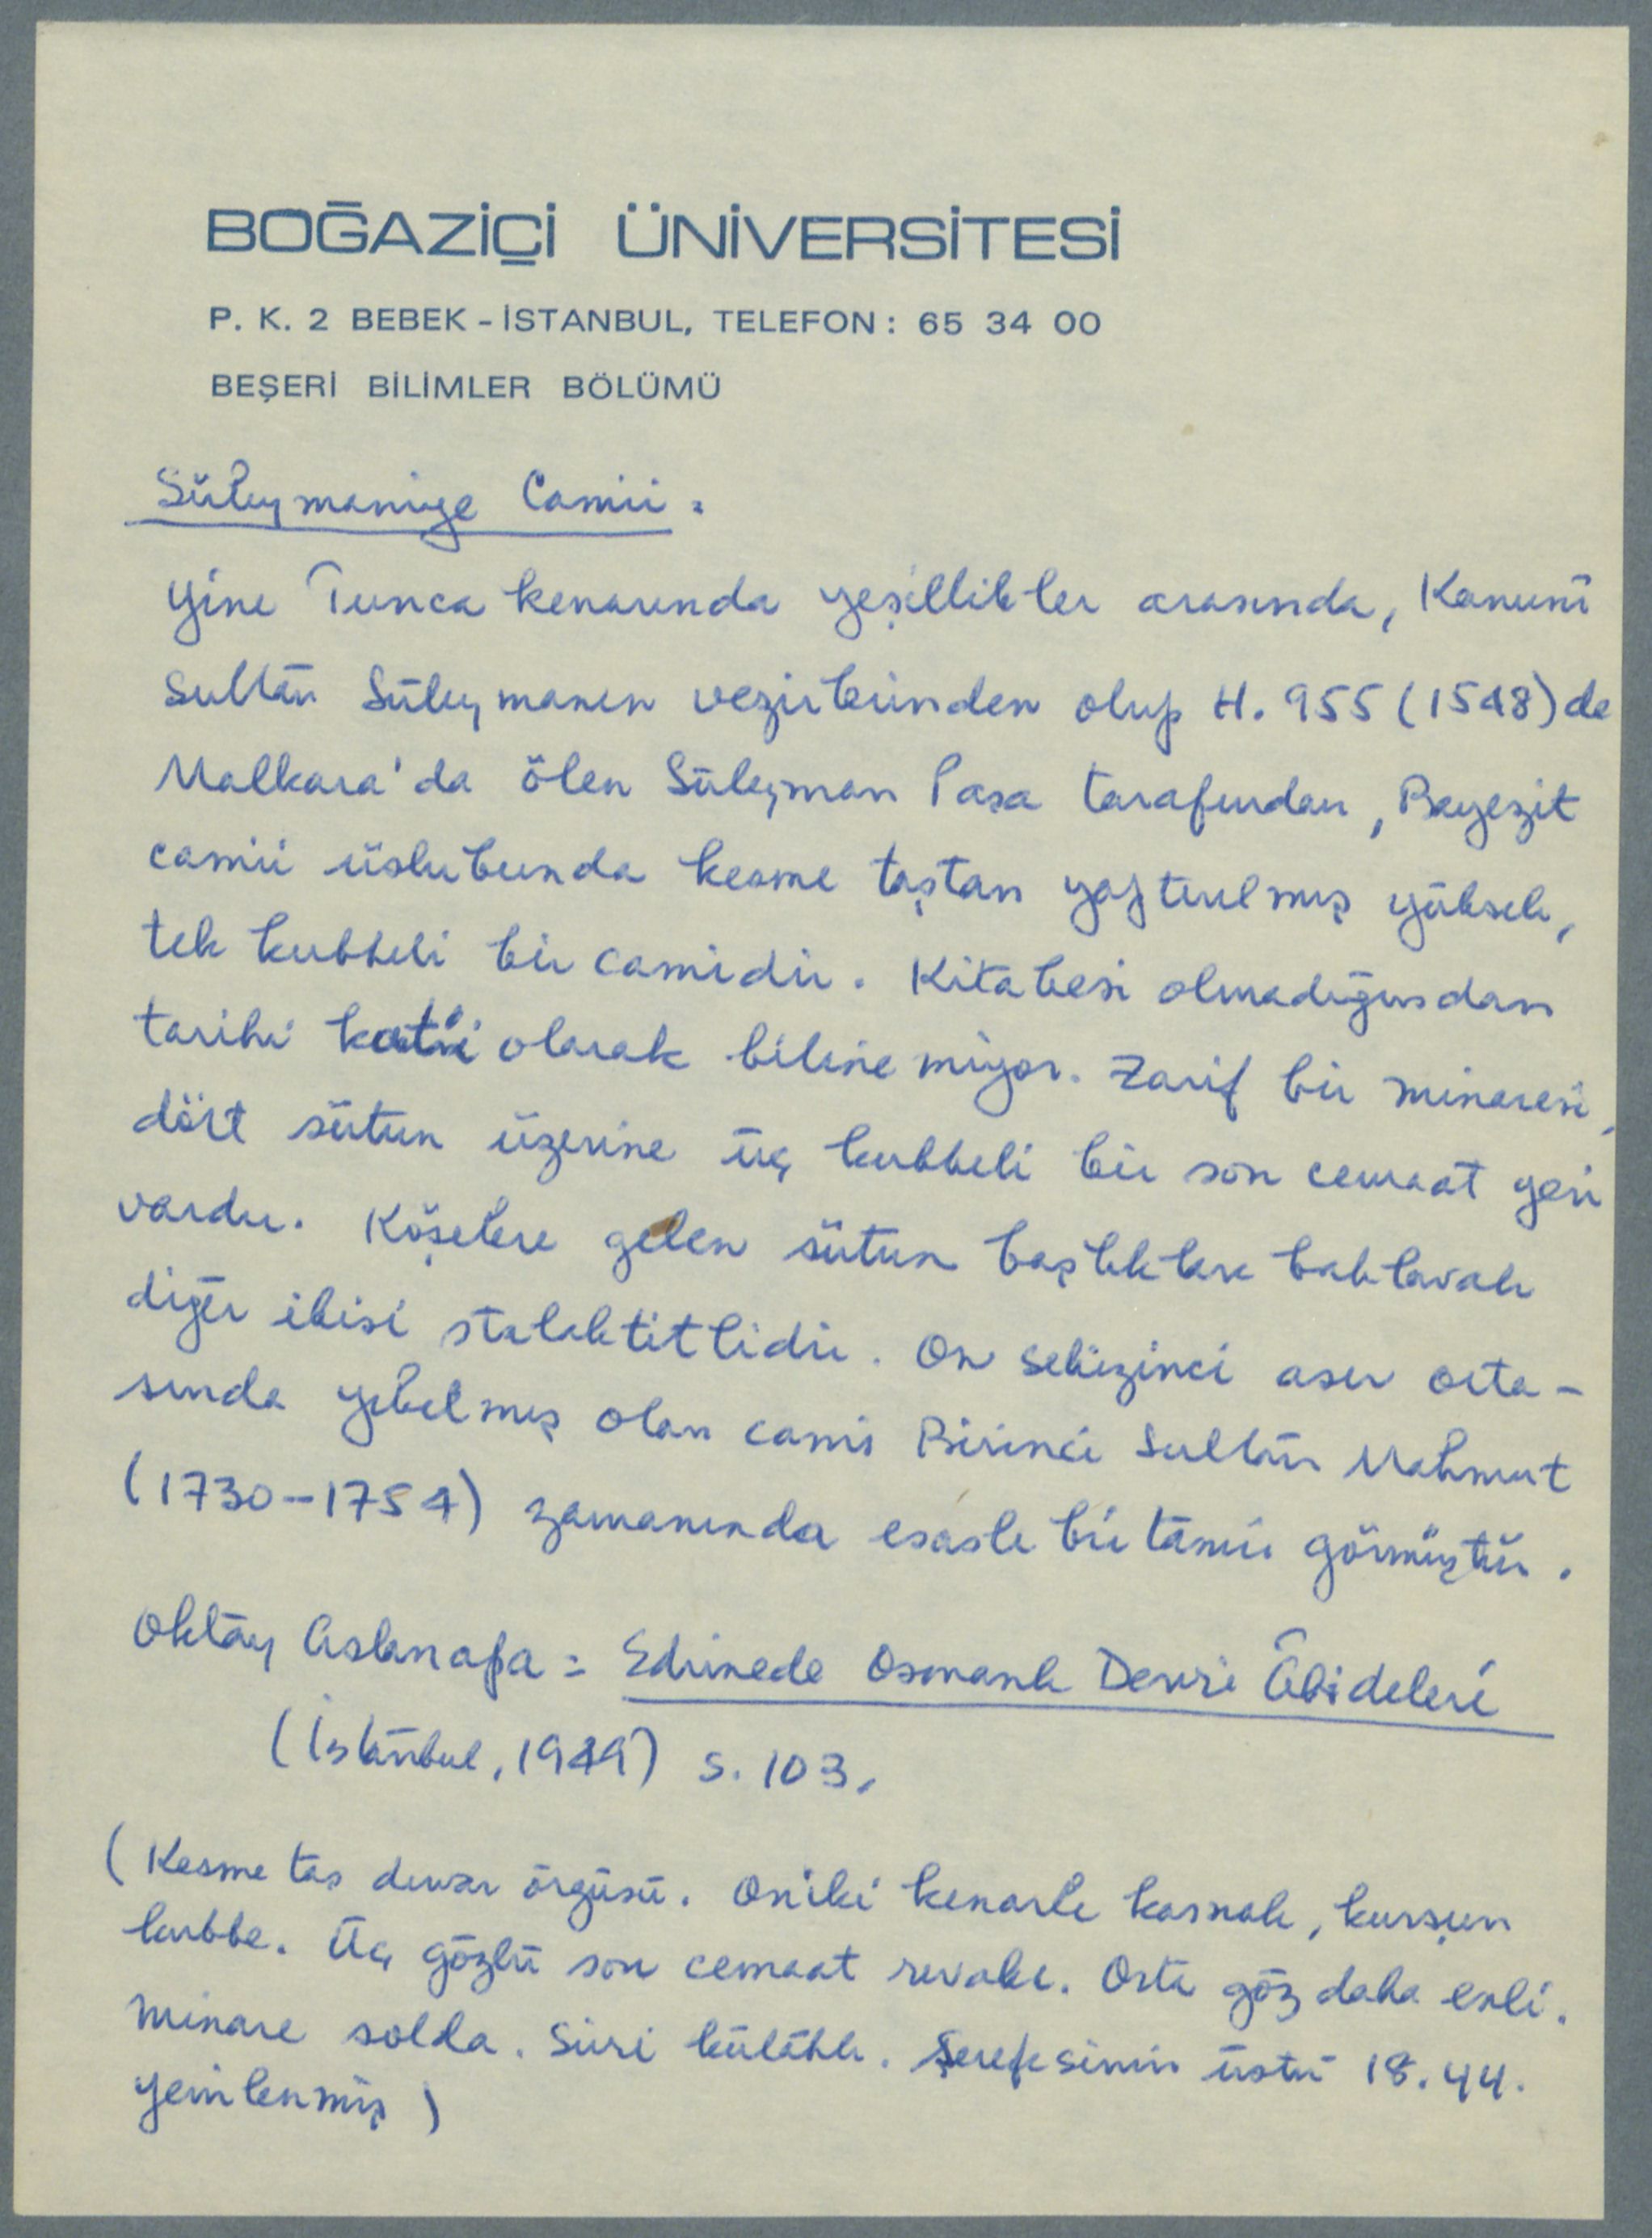 BOĞAZİÇİ ÜNİVERSİTESİ
P. K. 2 BEBEK - İSTANBUL, TELEFON : 65 34 00
BEŞERİ BİLİMLER BÖLÜMÜ
Süleymaniye Camii :
Yine Tunca kenarında yeşillikler arasında, Kanunî
Sultan Süleymanın vezirlerinden olup H. 955 (1548) de
Malkara'da ölen Süleyman Paşa tarafından, Bayezit
camii üslubunda kesme taştan yaptırılmış yüksek,
tek kubbeli bir camidir. Kitabesi olmadığından
tarihi kat'i olarak bilinemiyor. Zarif bir minaresi,
dört sütun üzerine üç kubbeli bir son cemaat yeri
vardır. Köşelere gelen sütun başlıkları baklavalı
diğer ikisi stalaktitlidir. On sekizinci asır orta-
sında yıkılmış olan cami Birinci Sultan Mahmut
(1730-1754) zamanında esaslı bir tamir görmüştür.
Oktay Aslanapa : Edirnede Osmanlı Devri Âbideleri
(İstanbul, 1949) s. 103.
(Kesme taş duvar örgüsü. Oniki kenarlı kasnak, kurşun
kubbe. Üç gözlü son cemaat revakı. Orta göz daha enli.
Minare solda. Sivri külâhlı. Şerefesinin üstü 18.yy.
yenilenmiş)